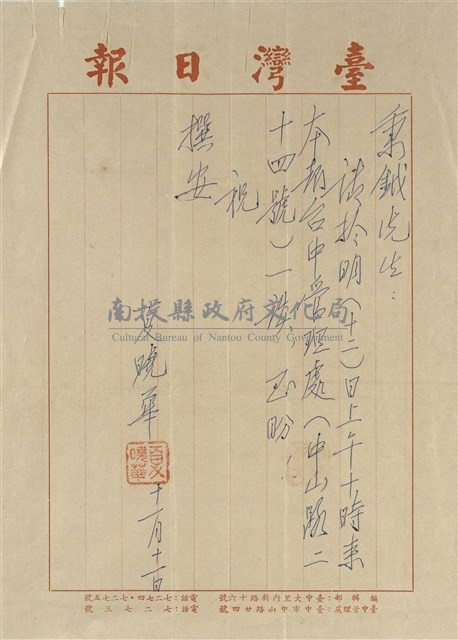 臺灣日報
秉鉞先生：
請於明（十二）日上午十時来
本報台中管理處（中山路二
十四號）一談，至盼，
祝
撰安
夏曉華
夏曉華
十一月十一日
南投縣政府文化局
Cultural Bureau of Nantou County Government
編輯部：臺中大里內新路十六號 電話：七二七四・七二七五號
臺中管理處：臺中市中山路廿四號 電話：七二七三號